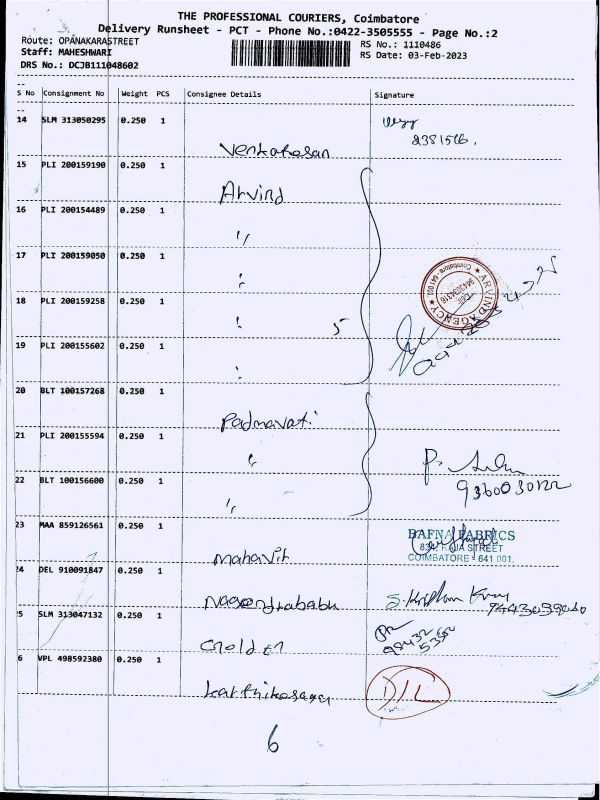 THE PROFESSIONAL COURIERS, Coimbatore
Delivery Runsheet - PCT - Phone No.:0422-3505555 - Page No.:2
Route: OPANAKARASTREET
RS No.: 1110486
Staff: MAHESHWARI
RS Date: 03-Feb-2023
DRS No.: DCJB111048602
S No Consignment No Weight PCS Consignee Details Signature
14 SLM 313050295 0.250 1
Venkatesan
2381516.
15 PLI 200159190 0.250 1
Arvind
16 PLI 200154489 0.250 1
"
17 PLI 200159050 0.250 1
"
18 PLI 200159258 0.250 1
" 5
ARVIND AGENCY
Coimbatore - 641 001
Cell:
19 PLI 200155602 0.250 1
"
20 BLT 100157268 0.250 1
Padmavati
21 PLI 200155594 0.250 1
"
22 BLT 100156600 0.250 1
"
23 MAA 859126561 0.250 1
Mahavir
BAFNA FABRICS
834, RAJA STREET
COIMBATORE - 641 001.
24 DEL 910091847 0.250 1
Nagendrababu
25 SLM 313047132 0.250 1
Golden
6 VPL 498592380 0.250 1
karthikesaga
D/L
6